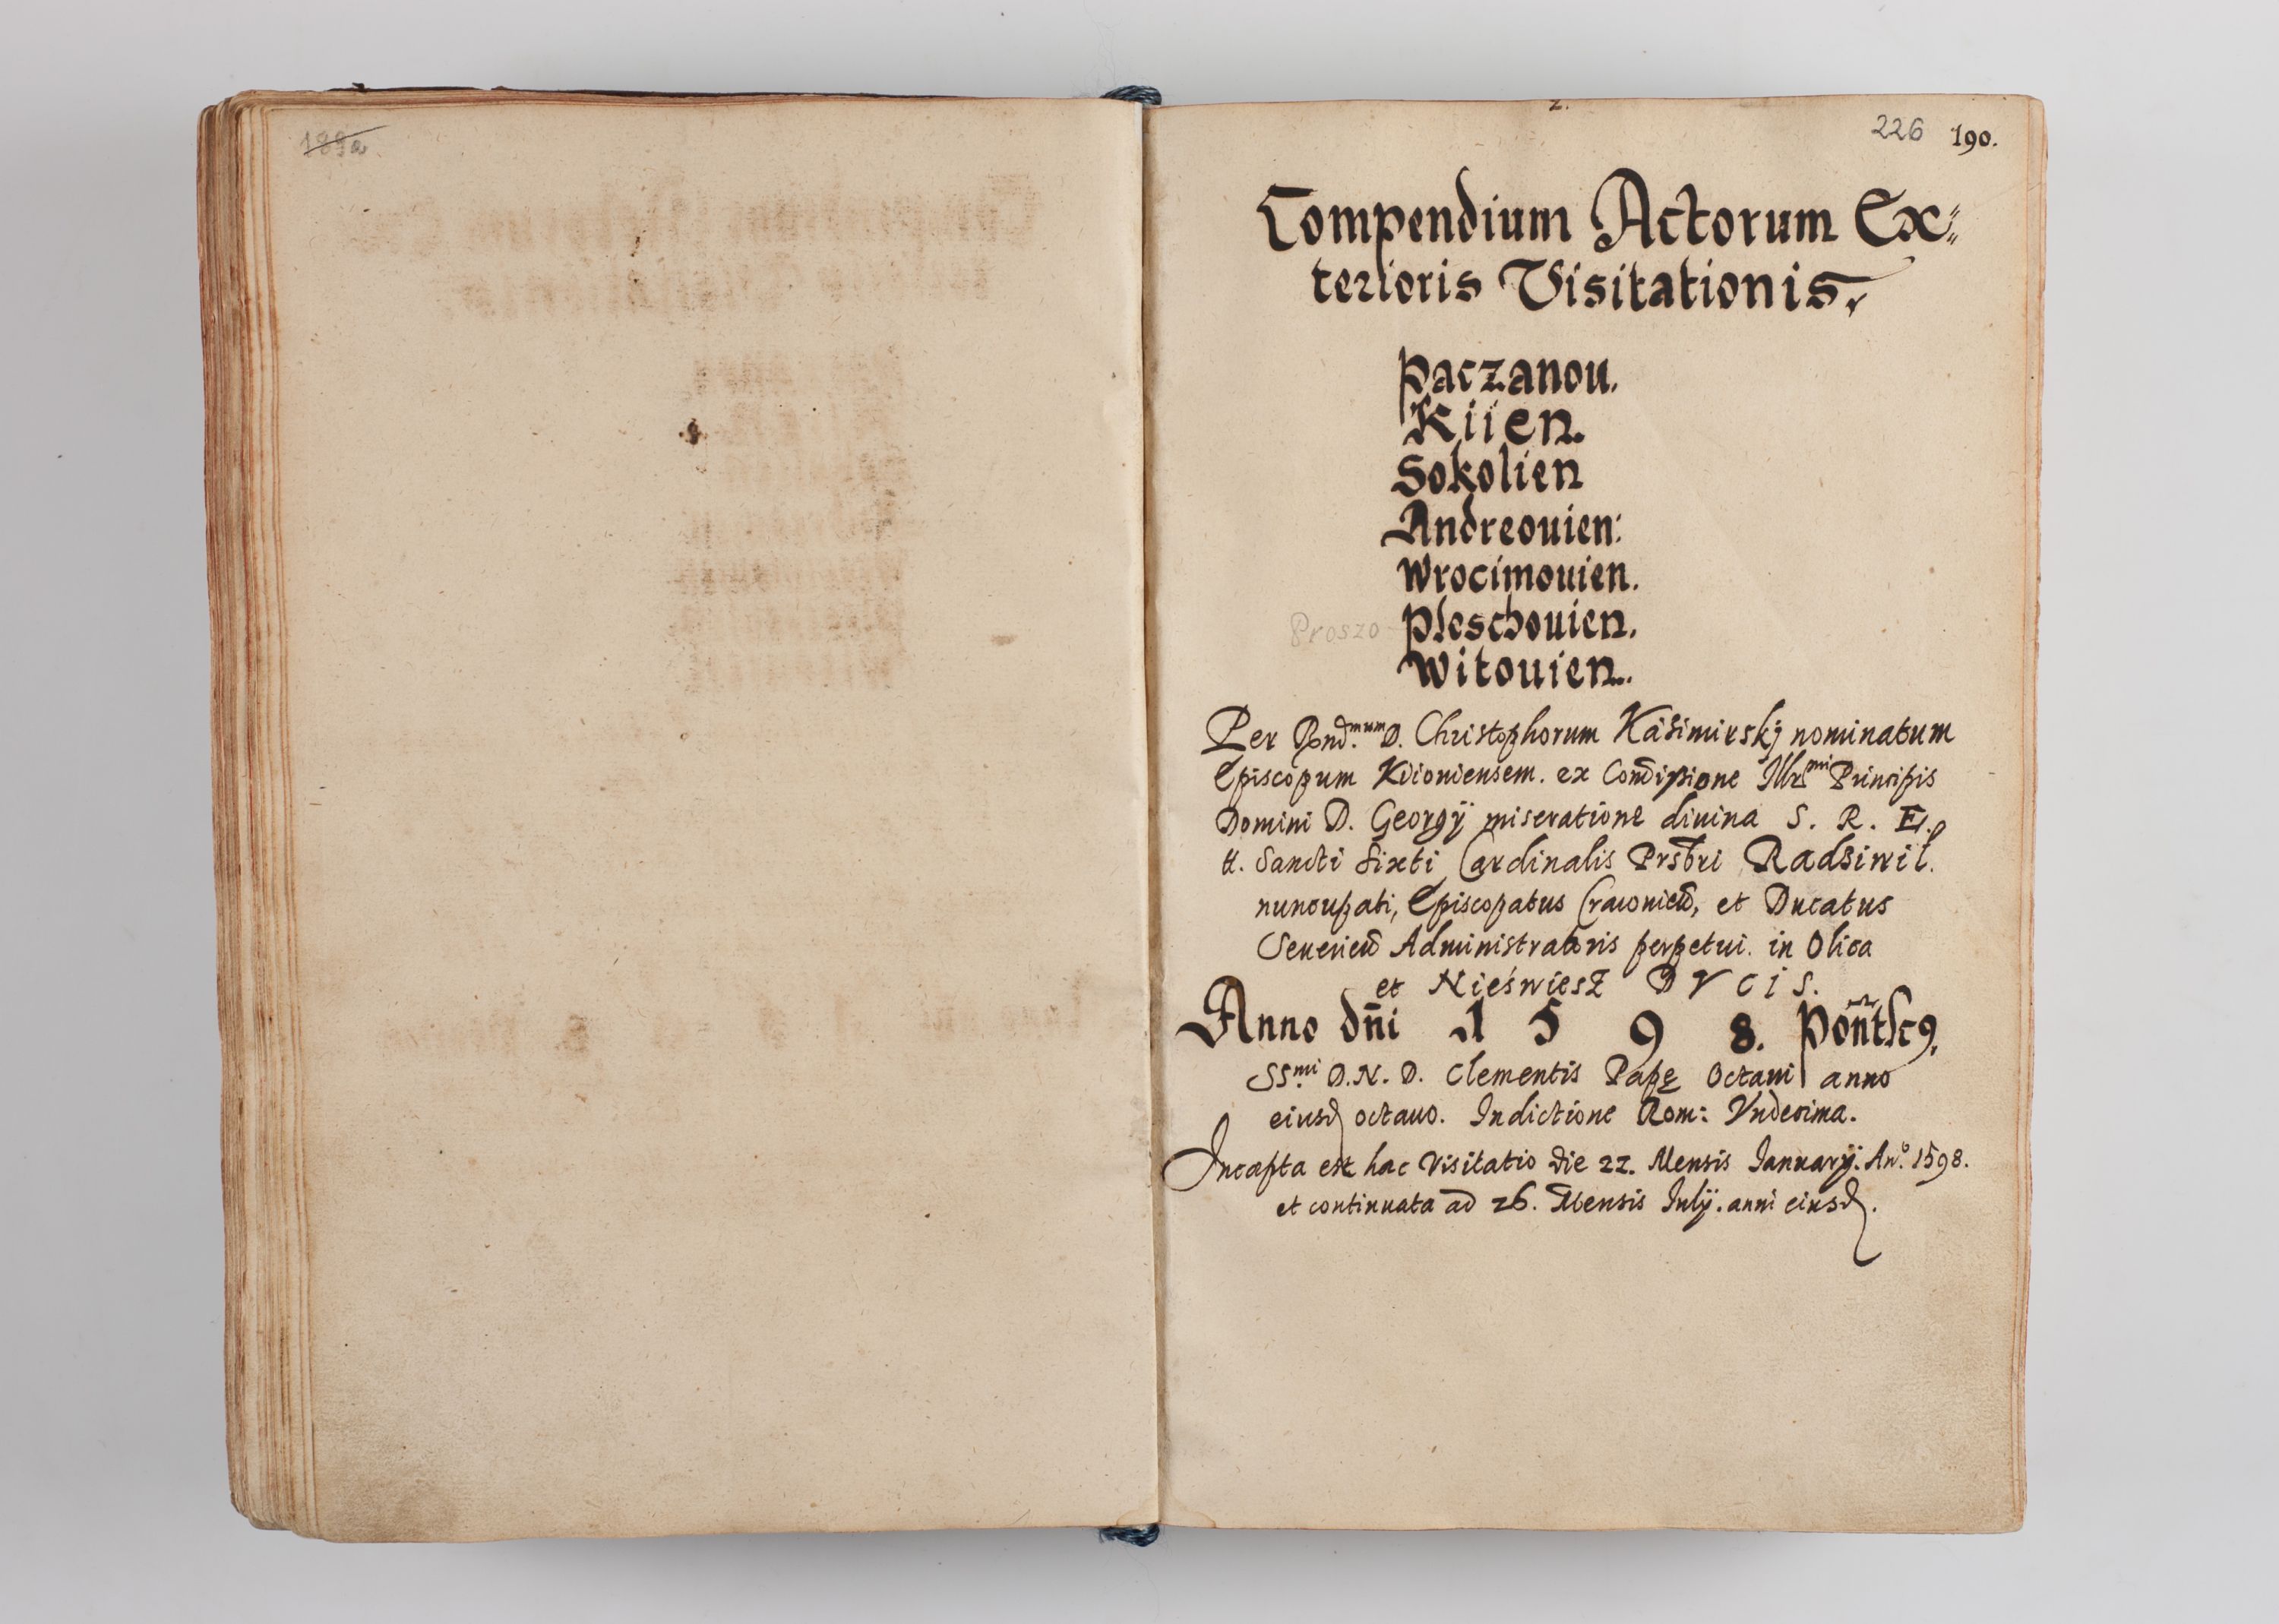 189a
2.
226 190.
Compendium Actorum Ex=
terioris Visitationis.
Paczanou.
Kiien.
Sokolien
Andreouien:
Wrocimouien.
Proszo- Pleschouien.
Witouien.
Per Rnd.mum D. Christophorum Kasimirskj nominatum
Episcopum Kiioniensem. ex Comissione Illr.mi Principis
Domini D. Georgÿ miseratione diuina S. R. E.
tt. Sancti Sixti Cardinalis Prsbri Radsiwil.
nuncupati, Episcopatus Cracouien, et Ducatus
Seuerien Administratoris perpetui. in Olica
et Nieświesz DVCIS.
Anno dñi 1598. Pontfc9.
SS.mi D.N.D. Clementis Papę Octaui anno
eiusd octauo. Indictione Rom: Vndecima.
Incæpta est hac Visitatio die 22. Mensis Januarÿ. An.o 1598.
et continuata ad 26. Mensis Julÿ. anni eiusd.